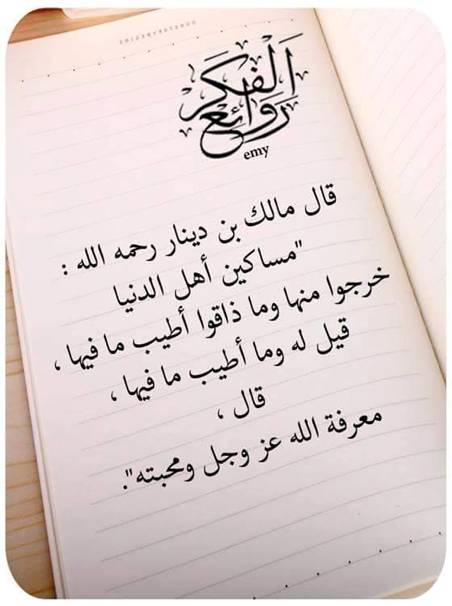 روائع الفكر
emy
قال مالك بن دينار رحمه الله :
"مساكين أهل الدنيا
خرجوا منها وما ذاقوا أطيب ما فيها ،
قيل له وما أطيب ما فيها ،
قال ،
معرفة الله عز وجل ومحبته".